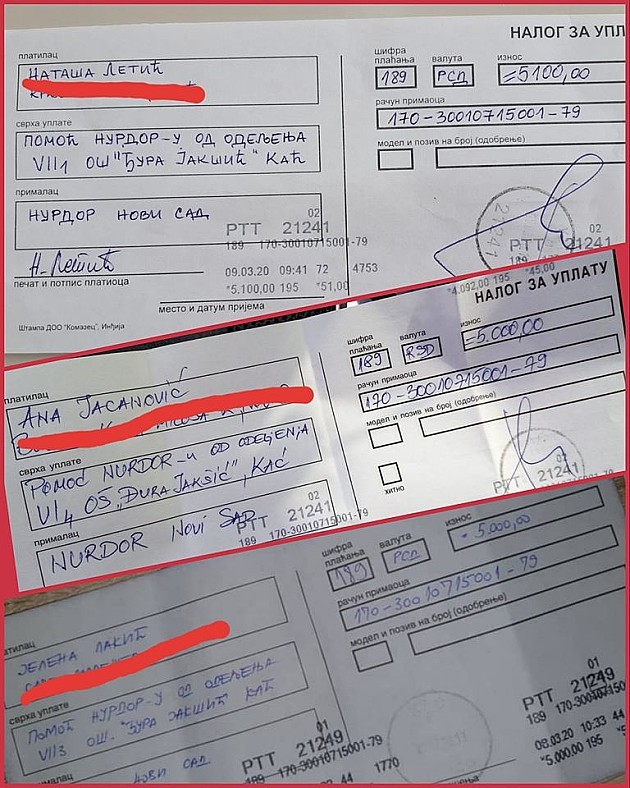 НАЛОГ ЗА УПЛ
платилац
НАТАША ЛЕТИЋ
шифра плаћања
валута
износ
189
РСД
=5100,00
рачун примаоца
170-30010715001-79
сврха уплате
ПОМОЋ НУРДОР-У ОД ОДЕЉЕЊА
VII1 ОШ "ЂУРА ЈАКШИЋ" КАЋ
модел и позив на број (одобрење)
прималац
НУРДОР НОВИ САД
02
РТТ 21241
189 170-30010715001-79
Н. Летић
09.03.20 09:41 72 4753
*5.100,00 195 *51,00
печат и потпис платиоца
место и датум пријема
Штампа ДОО "Комазец", Инђија
21241
02
РТТ 21241
*4.092,00 195 *45,00
НАЛОГ ЗА УПЛАТУ
платилац
ANA JACANOVIĆ
шифра плаћања
валута
износ
189
RSD
=5.000,00
рачун примаоца
170-30010715001-79
сврха уплате
POMOĆ NURDOR-U OD ODELJENJA
VI4, OŠ „ĐURA JAKŠIĆ", KAĆ
модел и позив на број (одобрење)
хитно
прималац
NURDOR NOVI SAD
02
РТТ 21241
189 170-30010715001-79
02
РТТ 21241
латилац
ЈЕЛЕНА ЛАКИЋ
шифра плаћања
валута
износ
189
РСД
= 5.000,00
рачун примаоца
170-30010715001-79
сврха уплате
ПОМОЋ НУРДОР-У ОД ОДЕЉЕЊА
VII3 ОШ. "ЂУРА ЈАКШИЋ" КАЋ
модел и позив на број (одобрење)
ималац
НОВИ САД
01
РТТ 21249
189 170-30010715001-79
44 1770
01
РТТ 21249
189 170-30010715001
09.03.20 10:33 44
*5.000,00 195